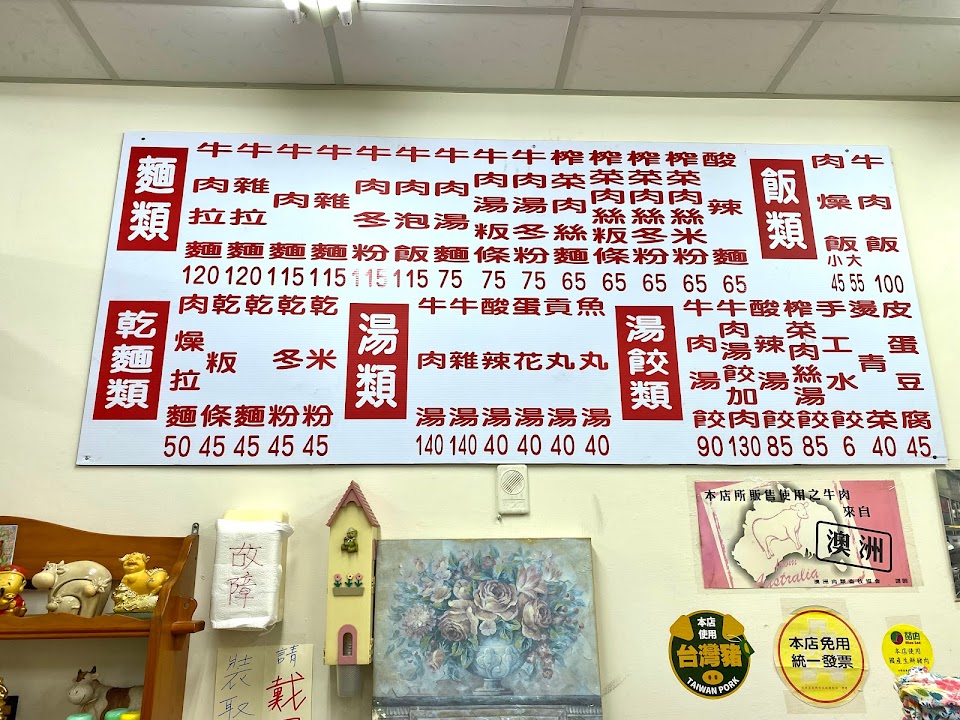 麵類
牛肉拉麵 120
牛雜拉麵 120
牛肉麵 115
牛雜麵 115
牛肉冬粉 115
牛肉泡飯 115
牛肉湯麵 75
牛肉湯粄條 75
牛肉湯冬粉 75
榨菜肉絲麵 65
榨菜肉絲粄條 65
榨菜肉絲冬粉 65
榨菜肉絲米粉 65
酸辣麵 65
飯類
肉燥飯 小45 大55
牛肉飯 100
乾麵類
肉燥拉麵 50
乾粄條 45
乾麵 45
乾冬粉 45
乾米粉 45
湯類
牛肉湯 140
牛雜湯 140
酸辣湯 40
蛋花湯 40
貢丸湯 40
魚丸湯 40
湯餃類
牛肉湯餃 90
牛肉湯餃加肉 130
酸辣湯餃 85
榨菜肉絲湯餃 85
手工水餃 6
燙青菜 40
皮蛋豆腐 45
本店所販售使用之牛肉
來自
澳洲
Australia
故障
請戴
裝取
本店
使用
台灣豬
TAIWAN PORK
本店免用
統一發票
本店使用
國產生鮮豬肉